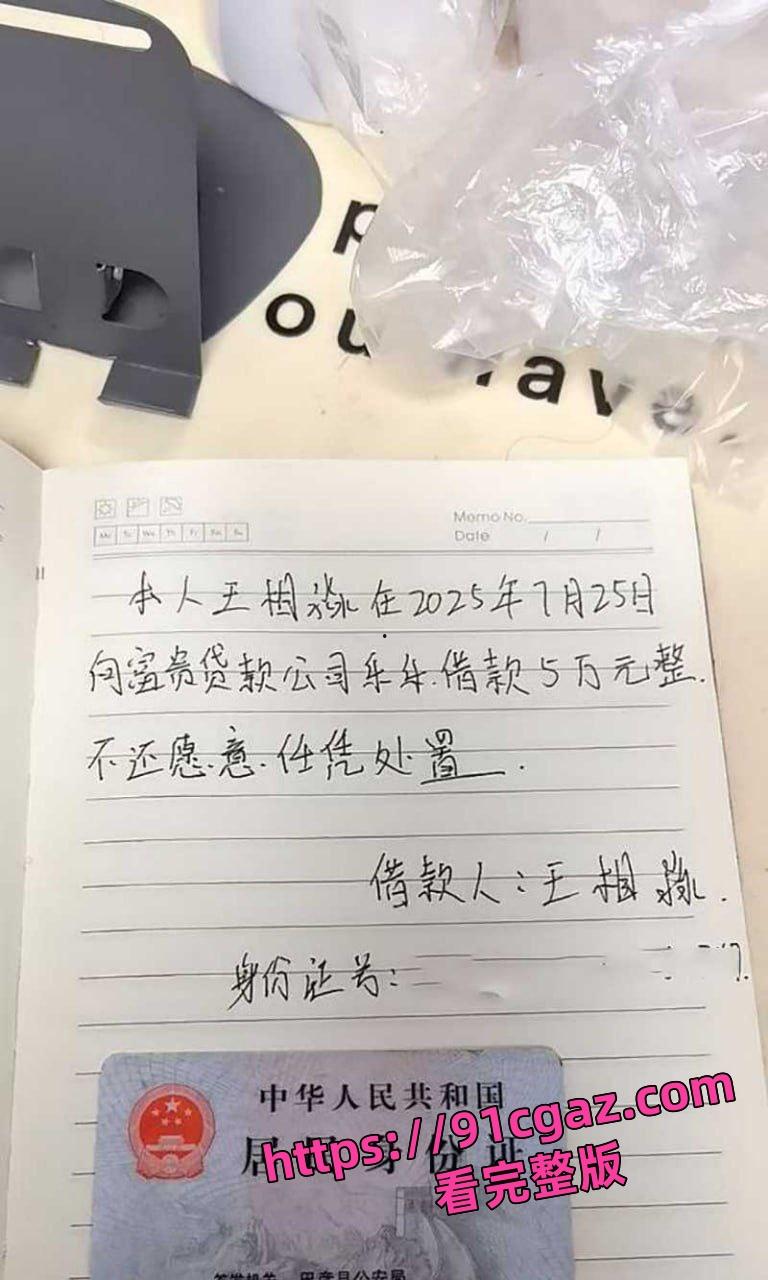 p
ou have
Mo Tu We Th Fr Sa Su
Memo No.
Date / /
本人王相淼在2025年7月25日
向富贵贷款公司乐乐.借款5万元整.
不还愿意.任凭处置.
借款人:王相淼.
身份证号:
中华人民共和国
居民身份证
签发机关
县公安局
https://91cgaz.com
看完整版